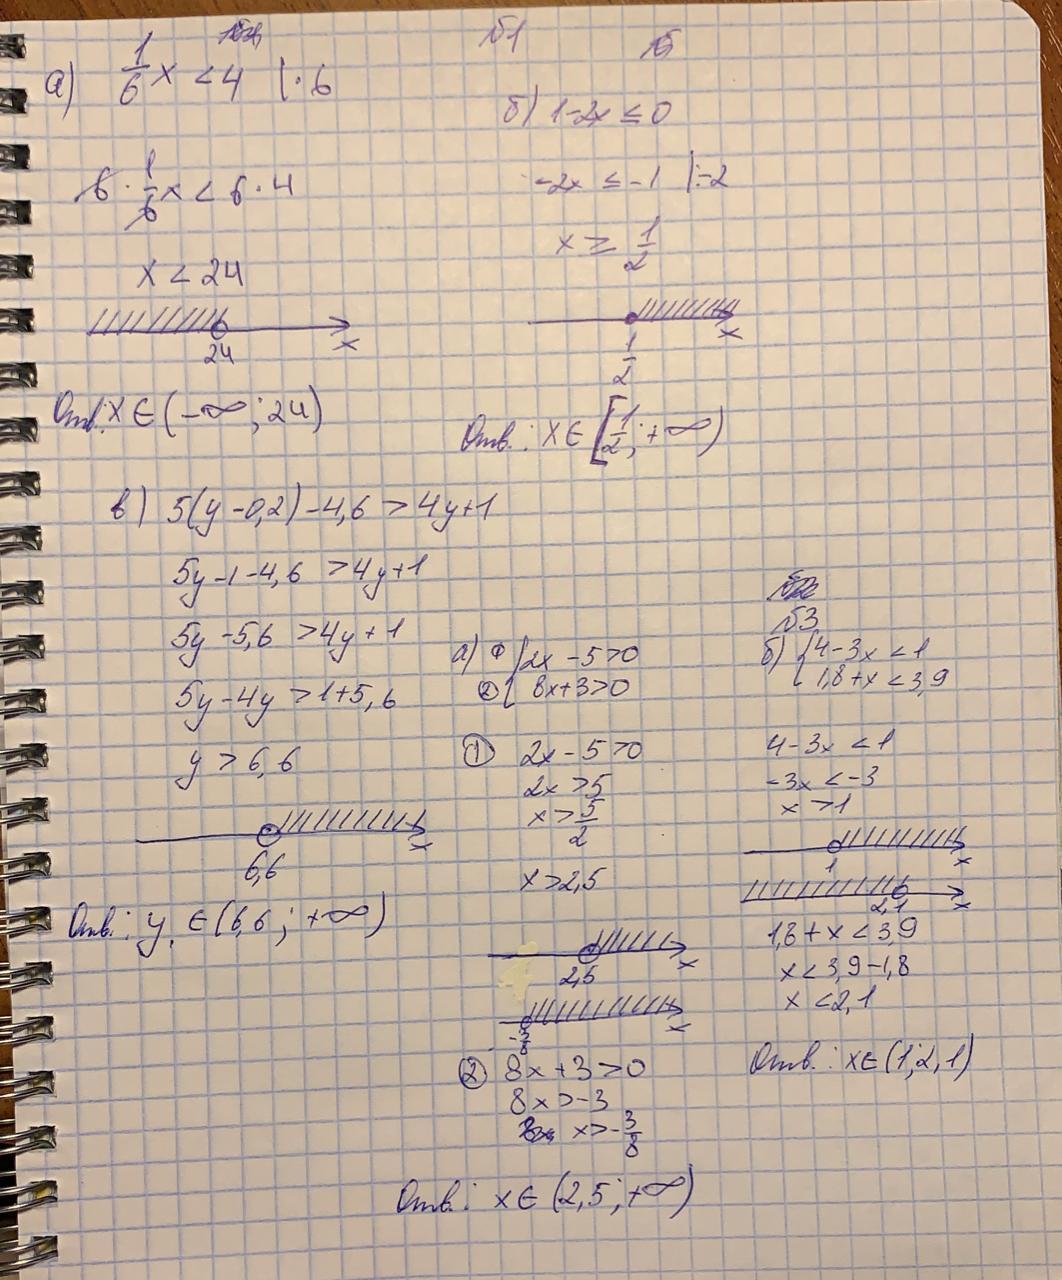 №1
а) 1/6 x < 4 | · 6
6 · 1/6 x < 6 · 4
x < 24
24
x
Отв: x ∈ (-∞; 24)
б) 1-2x ≤ 0
-2x ≤ -1 |:-2
x ≥ 1/2
1/2
x
Отв.: x ∈ [1/2; +∞)
в) 5(y-0,2)-4,6 > 4y+1
5y-1-4,6 > 4y+1
5y-5,6 > 4y+1
5y-4y > 1+5,6
y > 6,6
6,6
x
Отв.: y ∈ (6,6; +∞)
№3
а) ① { 2x-5>0
② { 8x+3>0
① 2x-5>0
2x>5
x > 5/2
x>2,5
2,5
x
-3/8
x
② 8x+3>0
8x>-3
x>-3/8
Отв.: x ∈ (2,5; +∞)
б) { 4-3x<1
{ 1,8+x<3,9
4-3x<1
-3x<-3
x>1
1
x
2,1
x
1,8+x<3,9
x<3,9-1,8
x<2,1
Отв.: x∈(1; 2,1)